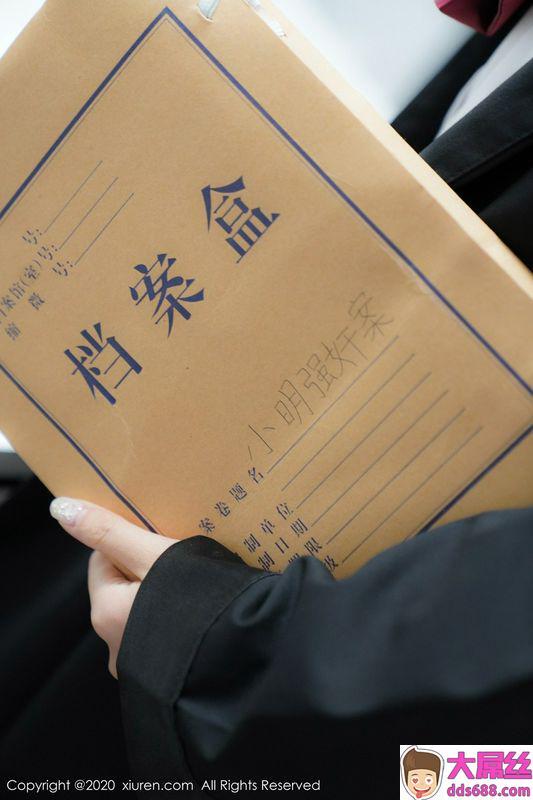 号:
档案馆(室)号:
缩微号:
档案盒
小明强奸案
案卷题名
制单位
制日期
限
级
Copyright @2020 xiuren.com All Rights Reserved
大屌丝
dds688.com